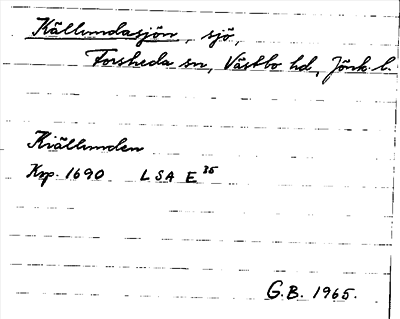 Källundasjön, sjö,
Forsheda sn, Västbo hd, Jönk. l.
Kiällunden
Kop. 1690 LSA E 35
G.B. 1965.